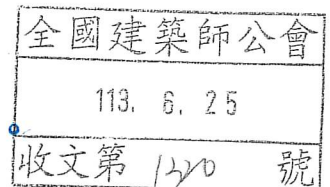 全國建築師公會
113. 6. 25
收文第 1320 號